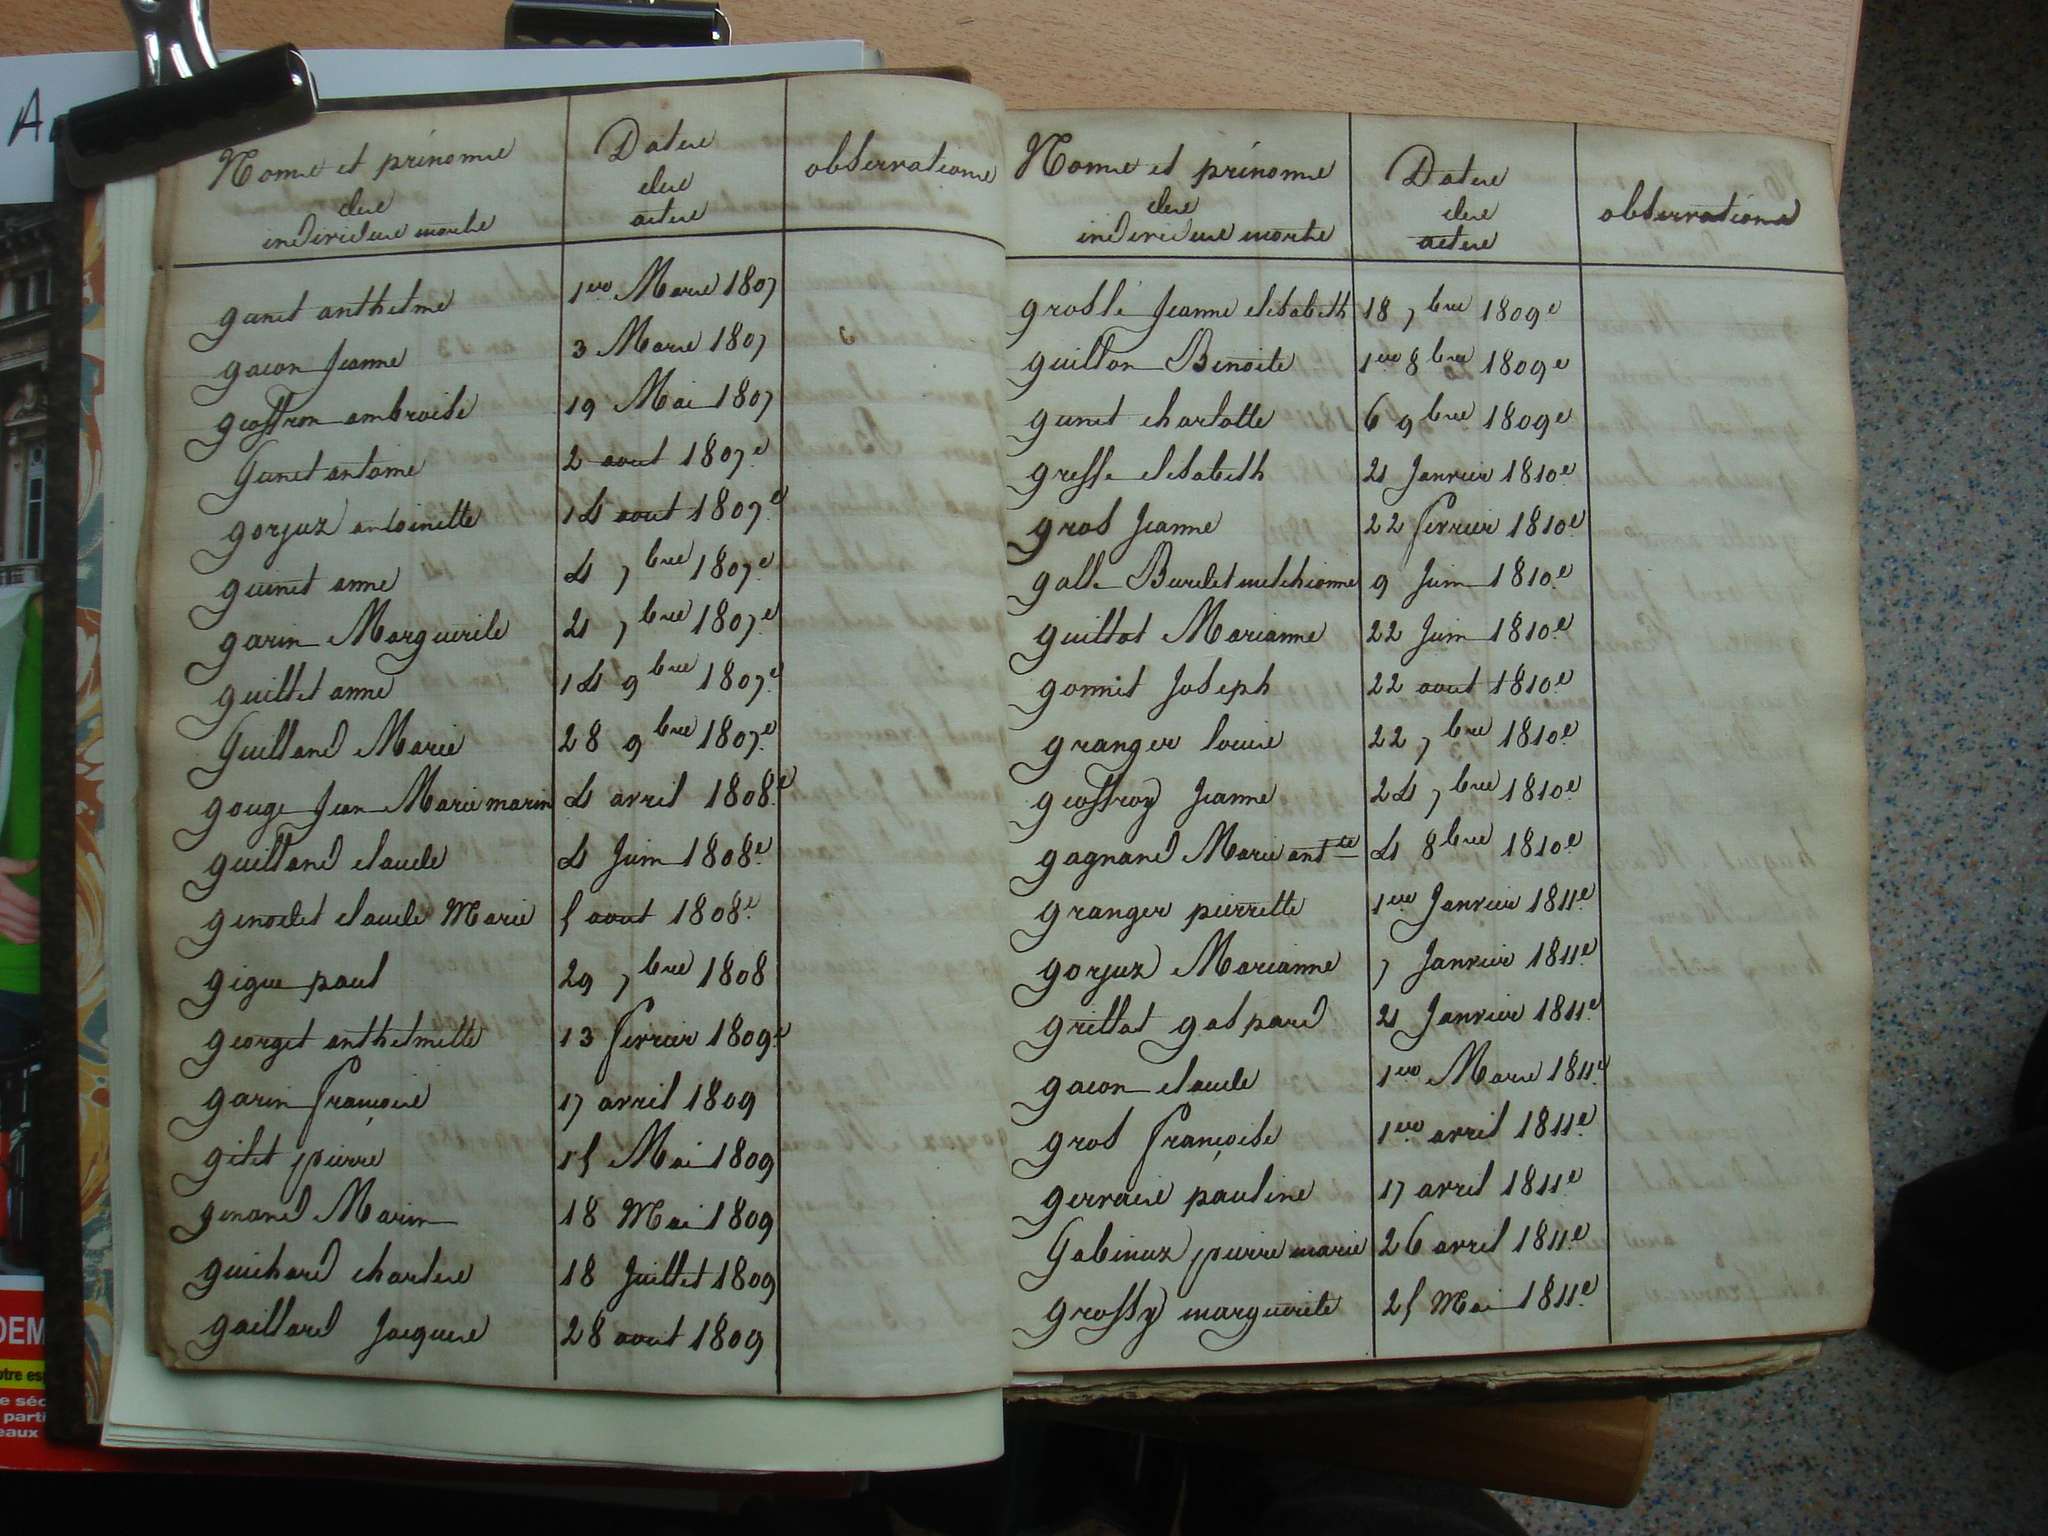 A
Noms et prénoms
des
individus morts
Dates
des
actes
observations
ganet anthelme 1er Mars 1807
gacon Jeanne 3 Mars 1807
geoffron ambroise 19 Mai 1807
Ganet antome 2 aout 1807.e
gorjuz antoinette 14 aout 1807.e
guinet anne 4 7bre 1807.e
garin Marguerite 21 7bre 1807.e
guillet anne 14 9bre 1807.e
Guilland Marie 28 9bre 1807.e
gouge Jean Marie marin 4 avril 1808.e
guilland claude 4 Juin 1808.e
genodet claude Marie 5 aout 1808.e
gigue paul 29 7bre 1808
georget anthelmette 13 fevrier 1809.e
garin françoise 17 avril 1809
gilet pierre 15 Mai 1809
genand Marin 18 Mai 1809
guichard charles 18 Juillet 1809
gaillard Jacques 28 aout 1809
Noms et prénoms
des
individus morts
Dates
des
actes
observations
groslé Jeanne elisabeth 18 7bre 1809e
guillon Benoite 1er 8bre 1809e
ganet charlotte 6 9bre 1809e
gresse elisabeth 21 Janvier 1810e
gros Jeanne 22 fevrier 1810e
galle Burdet melchionne 9 Juin 1810.e
guillot Marianne 22 Juin 1810.e
gonnet Joseph 22 aout 1810.e
granger louise 22 7bre 1810.e
geoffroy Jeanne 24 7bre 1810.e
gagnand Marie antte 4 8bre 1810.e
granger pierrette 1er Janvier 1811e
gorjuz Marianne 7 Janvier 1811e
grillot gaspard 21 Janvier 1811e
gacon claude 1er Mars 1811e
gros françoise 1er avril 1811e
gervais pauline 17 avril 1811e
Gabinuz pierre marie 26 avril 1811.e
grossy marguerite 25 Mai 1811.e
DEM
otre esp
e séc
parti
eaux